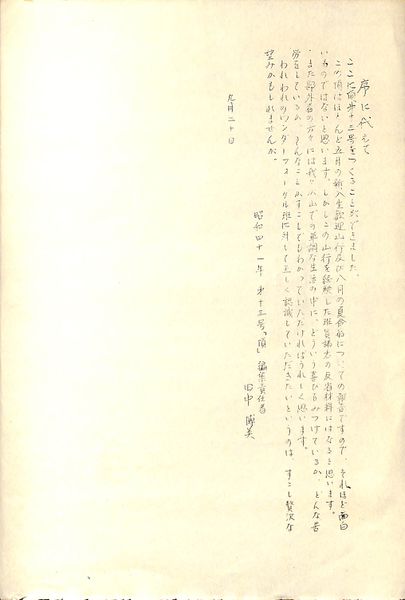 序に代えて
ここに頂第十三号をつくることができました。
この頂はほとんど五月の新入生歓迎山行及び八月の夏合宿についての報告ですので、それほど面白
いものではないと思います。しかしこの山行を経験した班員諸志の反省材料にはなると思います。
また部外者の方々には我々が山での単調な生活の中に、どういう喜びをみつけているか、どんな苦
労をしているか、そんなことがすこしでもわかっていただければうれしく思います。
われわれのワンダーフォーゲル班に対して正しく認識していただきたいというのは、すこし贅沢な
望みかもしれませんが。
九月二十日
昭和四十一年 第十三号「頂」編集責任者
田中